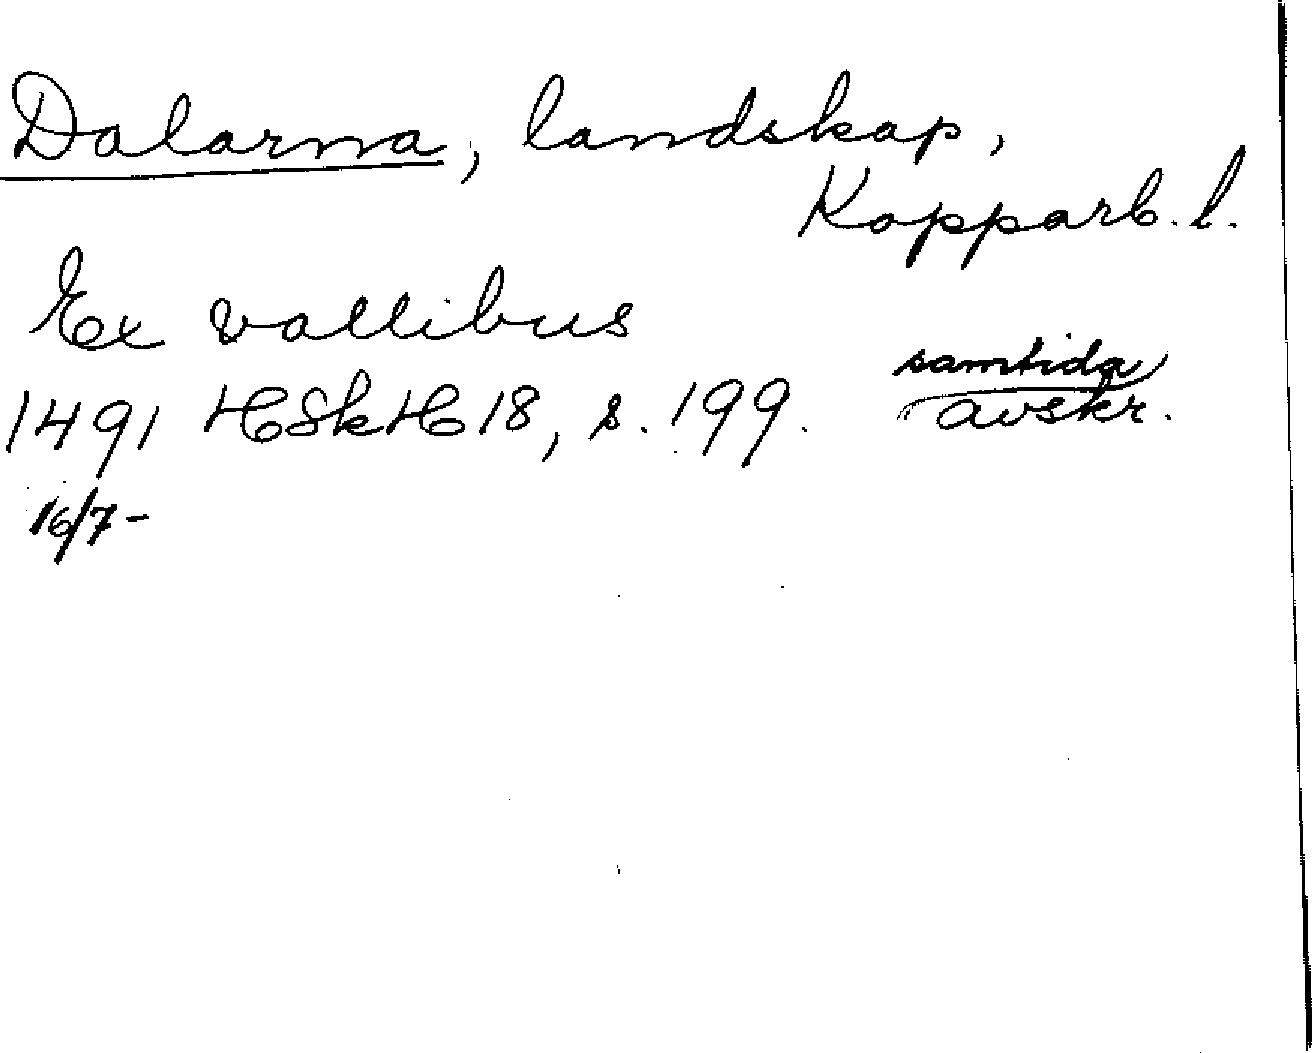 Dalarna, landskap,
Kopparb. l.
Ex vallibus
samtida
1491 HSkH 18, s. 199. avskr.
16/7-